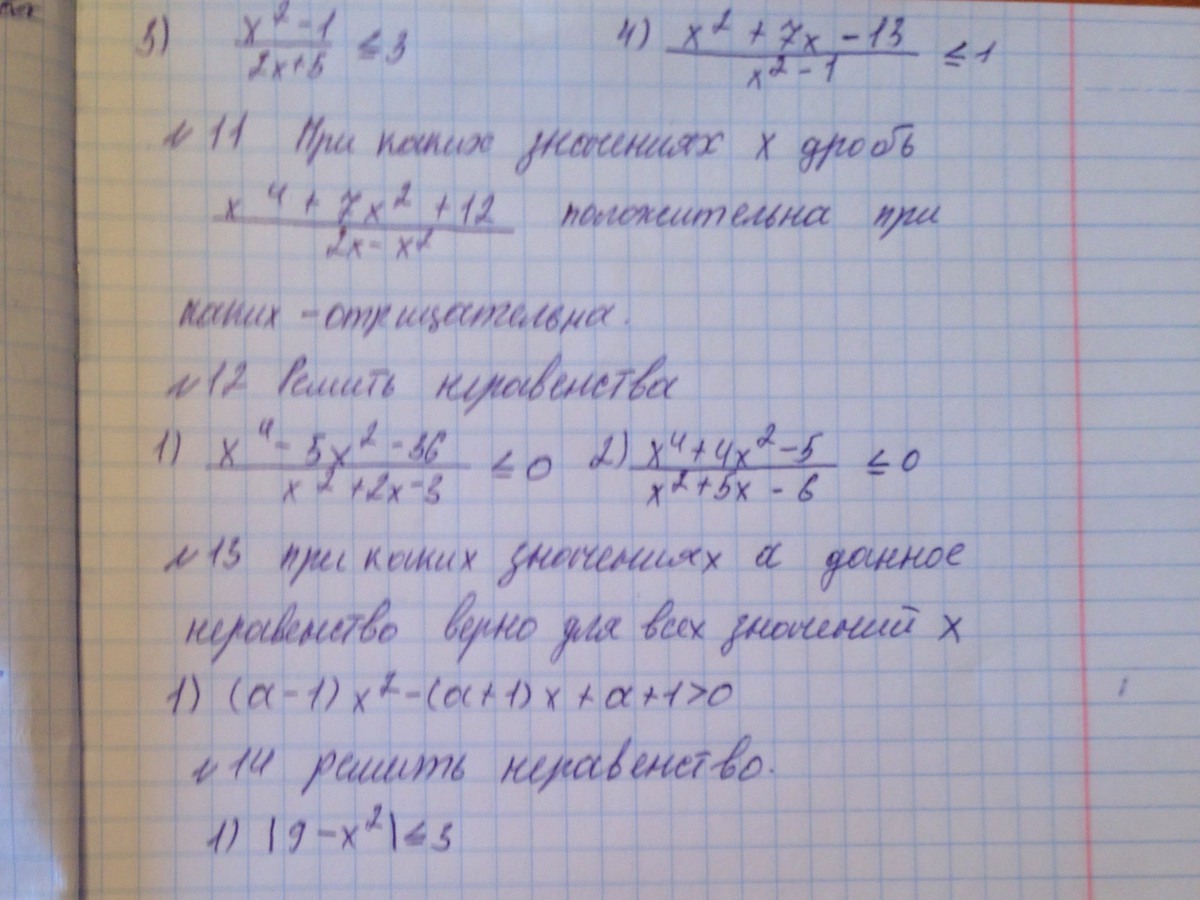 3) (x² - 1)/(2x+5) ≤ 3 4) (x² + 7x - 13)/(x² - 1) ≤ 1
№11 При каких значениях x дробь
(x⁴ + 7x² + 12)/(2x - x²) положительна при
каких - отрицательна.
№12 Решить неравенства
1) (x⁴ - 5x² - 36)/(x² + 2x - 3) ≤ 0 2) (x⁴ + 4x² - 5)/(x² + 5x - 6) ≤ 0
№13 при каких значениях a данное
неравенство верно для всех значений x
1) (a - 1) x² - (a + 1) x + a + 1 > 0
№14 решить неравенство.
1) |9 - x²| ≤ 3